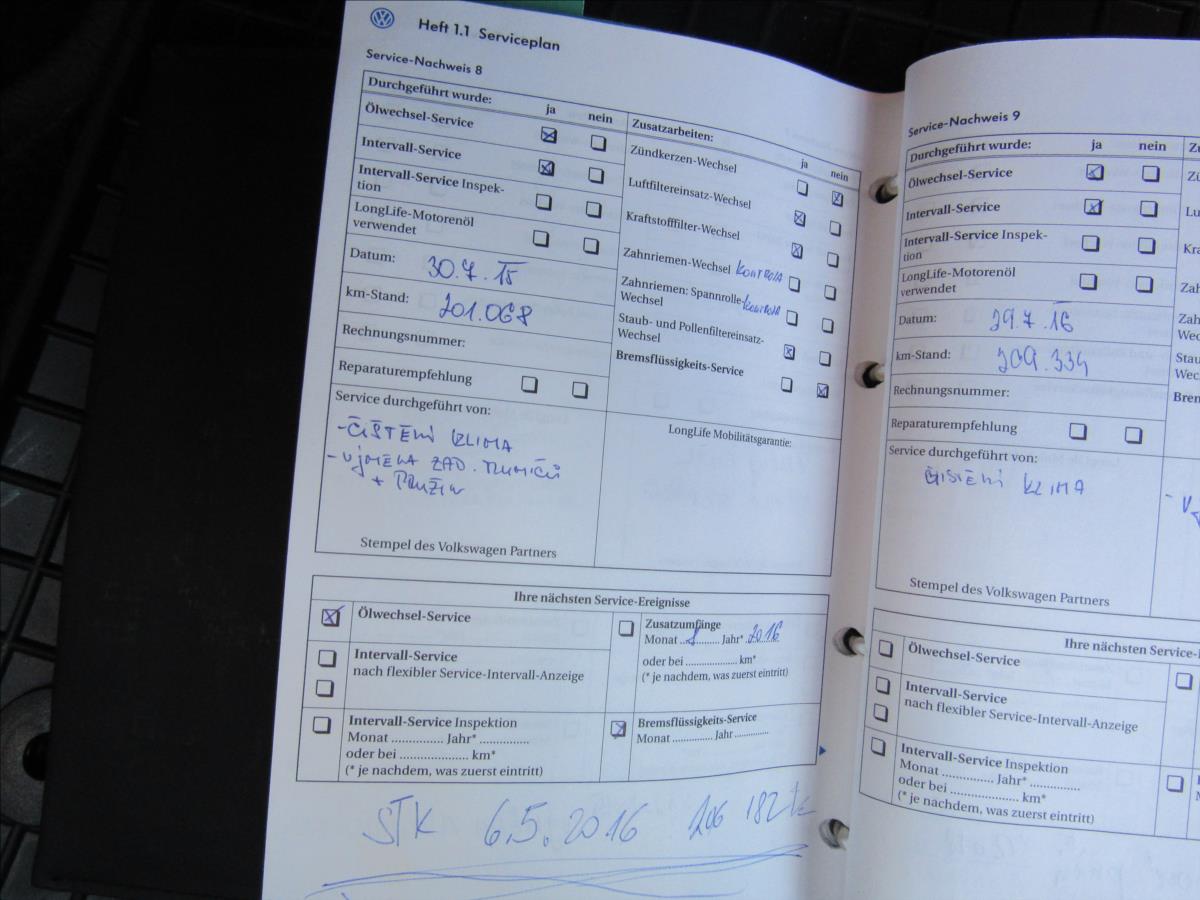 Heft 1.1 Serviceplan
Service-Nachweis 8
Durchgeführt wurde: ja nein
Ölwechsel-Service
Intervall-Service
Intervall-Service Inspek-
tion
LongLife-Motorenöl
verwendet
Datum: 30.7.15
km-Stand: 201.068
Rechnungsnummer:
Reparaturempfehlung
Service durchgeführt von:
-ČIŠTĚNÍ KLIMA
Stempel des Volkswagen Partners
Zusatzarbeiten: ja nein
Zündkerzen-Wechsel
Luftfiltereinsatz-Wechsel
Kraftstofffilter-Wechsel
Zahnriemen-Wechsel
Zahnriemen: Spannrolle-
Wechsel
Staub- und Pollenfiltereinsatz-
Wechsel
Bremsflüssigkeits-Service
LongLife Mobilitätsgarantie:
Ihre nächsten Service-Ereignisse
Ölwechsel-Service
Intervall-Service
nach flexibler Service-Intervall-Anzeige
Intervall-Service Inspektion
Monat .............. Jahr* .............
oder bei .................... km*
(* je nachdem, was zuerst eintritt)
Zusatzumfänge
Monat .......... Jahr* 2016
oder bei .................... km*
(* je nachdem, was zuerst eintritt)
Bremsflüssigkeits-Service
Monat ............ Jahr ............
STK 6.5.2016 206 182
Service-Nachweis 9
Durchgeführt wurde: ja nein
Ölwechsel-Service
Intervall-Service
Intervall-Service Inspek-
tion
LongLife-Motorenöl
verwendet
Datum: 29.7.16
km-Stand: 209.334
Rechnungsnummer:
Reparaturempfehlung
Service durchgeführt von:
ČIŠTĚNÍ KLIMA
Stempel des Volkswagen Partners
Ihre nächsten Service-
Ölwechsel-Service
Intervall-Service
nach flexibler Service-Intervall-Anzeige
Intervall-Service Inspektion
Monat .............. Jahr* .............
oder bei .................... km*
(* je nachdem, was zuerst eintritt)